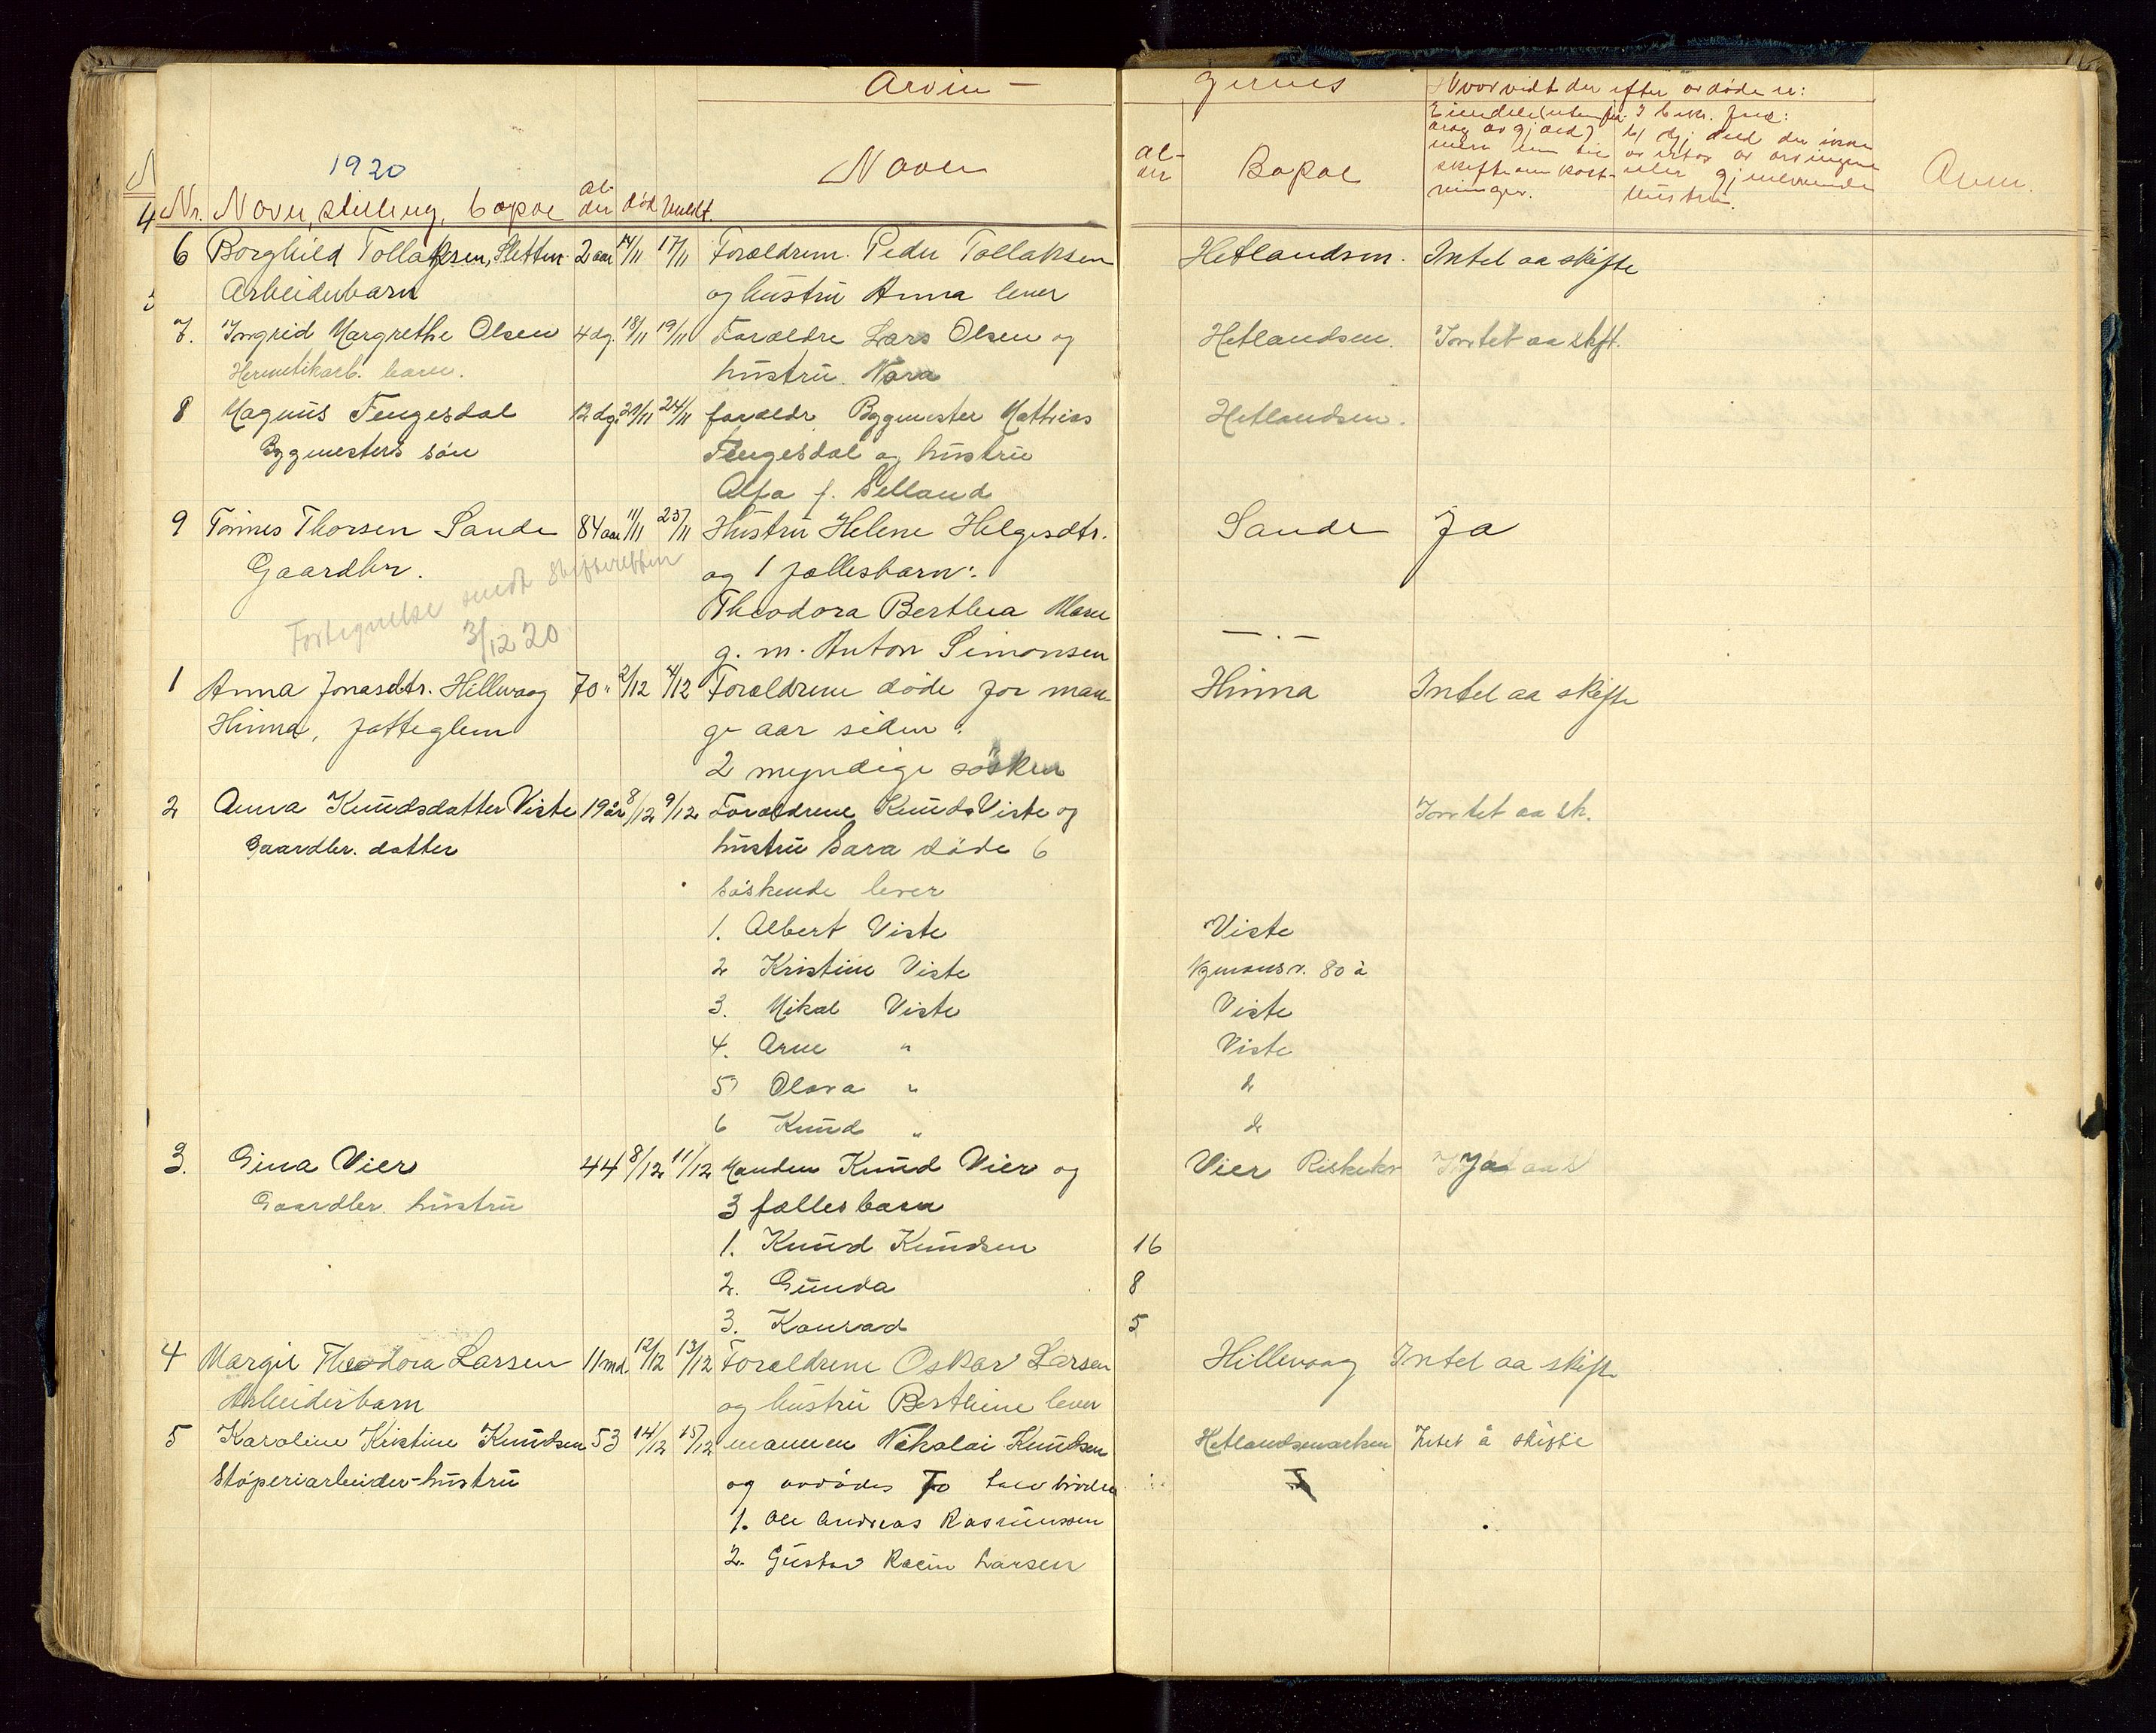 Arvin- gernes
Hvorvidt der efter avdøde er:
1920
Nr. Navn, stilling, bopæl Al-der død meldt. Navn Al-der Bopæl Anm.
6 Borghild Tollaksen, Sletten 2 aar 14/11 17/11 Forældrene Peder Tollaksen Hetlandsm. Intet aa skifte
Arbeiderbarn og hustru Anna lever
7. Ingrid Margrethe Olsen 4 dg. 18/11 19/11 Forældre Lars Olsen og Hetlandsm. Intet aa skft.
Hermetikarb. barn. hustru Nora
8 Magnus Fengesdal 12 dg. 21/11 24/11 forældr. Bygmester Mathias Hetlandsm.
Bygmesters søn Fengesdal og hustru
Alfa f. Selland
9 Tønnes Thorsen Sande 84 aar 11/11 23/11 Hustru Helene Helgesdtr. Sande Ja
Gaardbr. og 1 fællesbarn:
Fortegnelse sendt Skifteretten
3/12 20
Theodora Berthea
g. m. Anton Simonsen
1 Anna Jonasdtr. Hillevaag 70 " 2/12 4/12 Forældrene døde for man- Hinna Intet aa skifte
Hinna, fattiglem ge aar siden:
2 myndige søsken
2 Anna Knudsdatter Viste 19 år 8/12 9/12 Forældrene Knud Viste og Intet aa sk.
Gaardbr. datter hustru Sara døde 6
søskende lever
1. Albert Viste Viste
2 Kristine Viste 80 a
3. Mikal Viste Viste
4. Arne " Viste
5 Olava " d
6 Knud " d
3. Gina Vier 44 8/12 11/12 Manden Knud Vier og Vier Riskekv Ja
Gaardbr. hustru 3 fælles barn
1. Knud Knudsen 16
2. Gunda 8
3. Konrad 5
4 Margit Theodora Larsen 11 md 12/12 13/12 Forældrene Oskar Larsen Hillevaag Intet aa skift
Arbeiderbarn og hustru Berthine lever
5 Karoline Kristine Knudsen 53 14/12 15/12 mannen Nikolai Knudsen Hetlandsmarken Intet å skifte
Støperiarbeider-hustru og avdødes To halvbrødre
1. Ole Andreas Rasmussen
2. Gustav Larsen